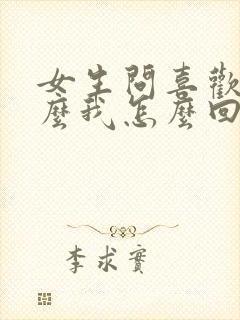 女生問喜歡
麼我怎麼回
李求實